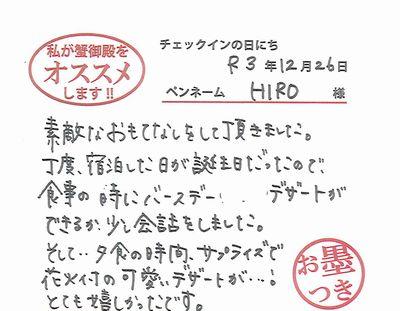 私が蟹御殿を
オススメ
します!!
チェックインの日にち
R3年12月26日
ペンネーム HIRO 様
素敵なおもてなしをして頂きました。
丁度、宿泊した日が誕生日だったので、
食事の時にバースデー デザートが
できるか、少し会話をしました。
そして‥夕食の時間、サプライズで
花火付の可愛いデザートが…!
とても嬉しかったです。
お墨
つき